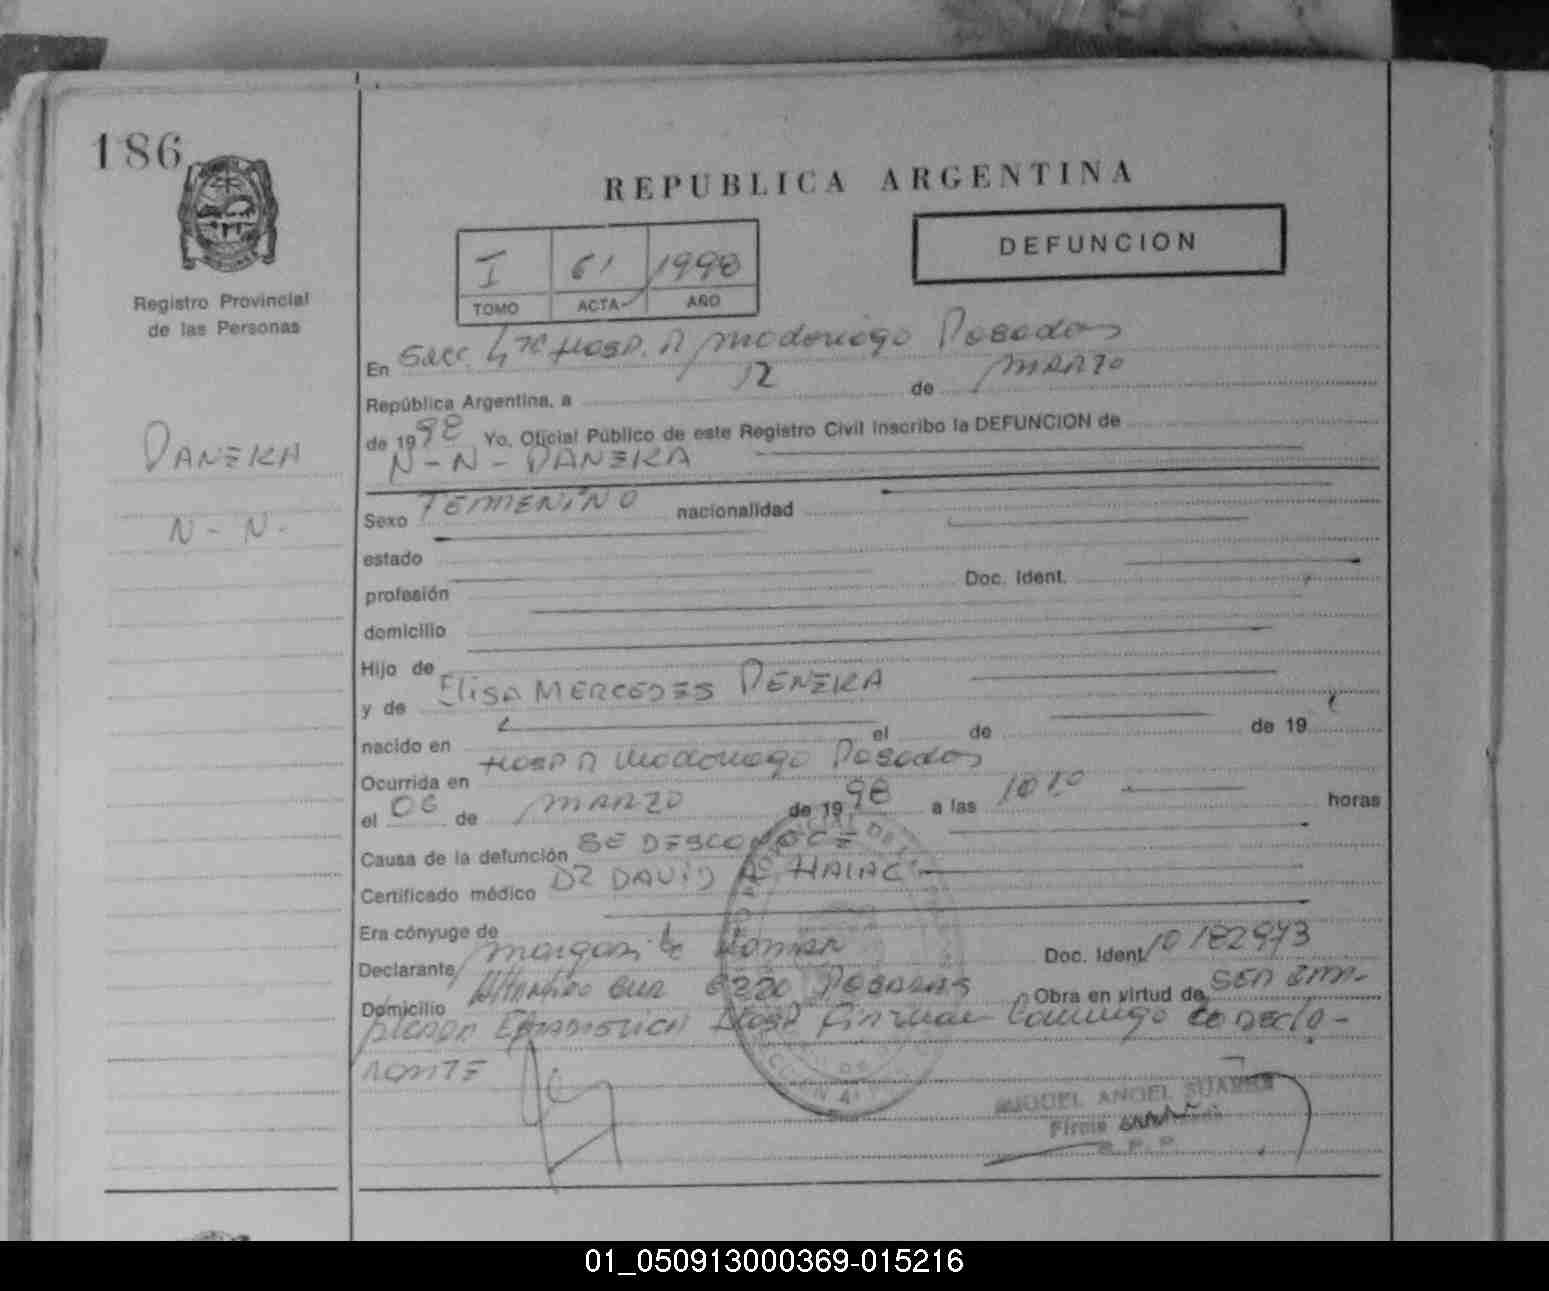 186
REPUBLICA ARGENTINA
DEFUNCION
I 61 1998
TOMO ACTA AÑO
Registro Provincial
de las Personas
En Secc. Hosp. R Madariaga Posadas
República Argentina, a 12 de MARZO
de 1998 Yo, Oficial Público de este Registro Civil inscribo la DEFUNCION de
N-N- DANEKA
DANEKA
N-N-
Sexo FEMENINO nacionalidad
estado
profesión Doc. Ident.
domicilio
Hijo de
y de Elisa MERCEDES DENEKA
nacido en el de de 19
Ocurrida en Hosp R Madariaga Posadas
el 06 de MARZO de 1998 a las 10 horas
Causa de la defunción SE DESCONOCE
Certificado médico DR DAVID A. HALAC
Era cónyuge de
Declarante Doc. Ident. 10182973
Domicilio SUR POSADAS Obra en virtud de SER EM-
PLEADA ESTADISTICA Hosp el DECLA-
RANTE
MIGUEL ANGEL SUAREZ
Firma
R. P. P.
01_050913000369-015216